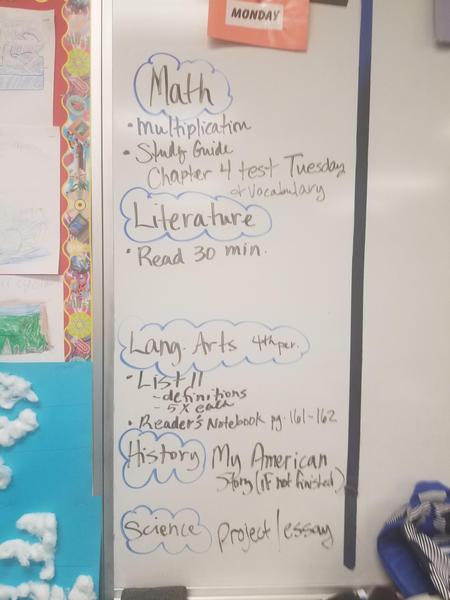 MONDAY
Math
• Multiplication
• Study Guide
Chapter 4 test Tuesday
+ vocabulary
Literature
• Read 30 min.
Lang. Arts 4th per.
• List 11
- definitions
- 5 x each
• Reader's Notebook pg. 161-162
History My American
Story (if not finished)
Science project/essay